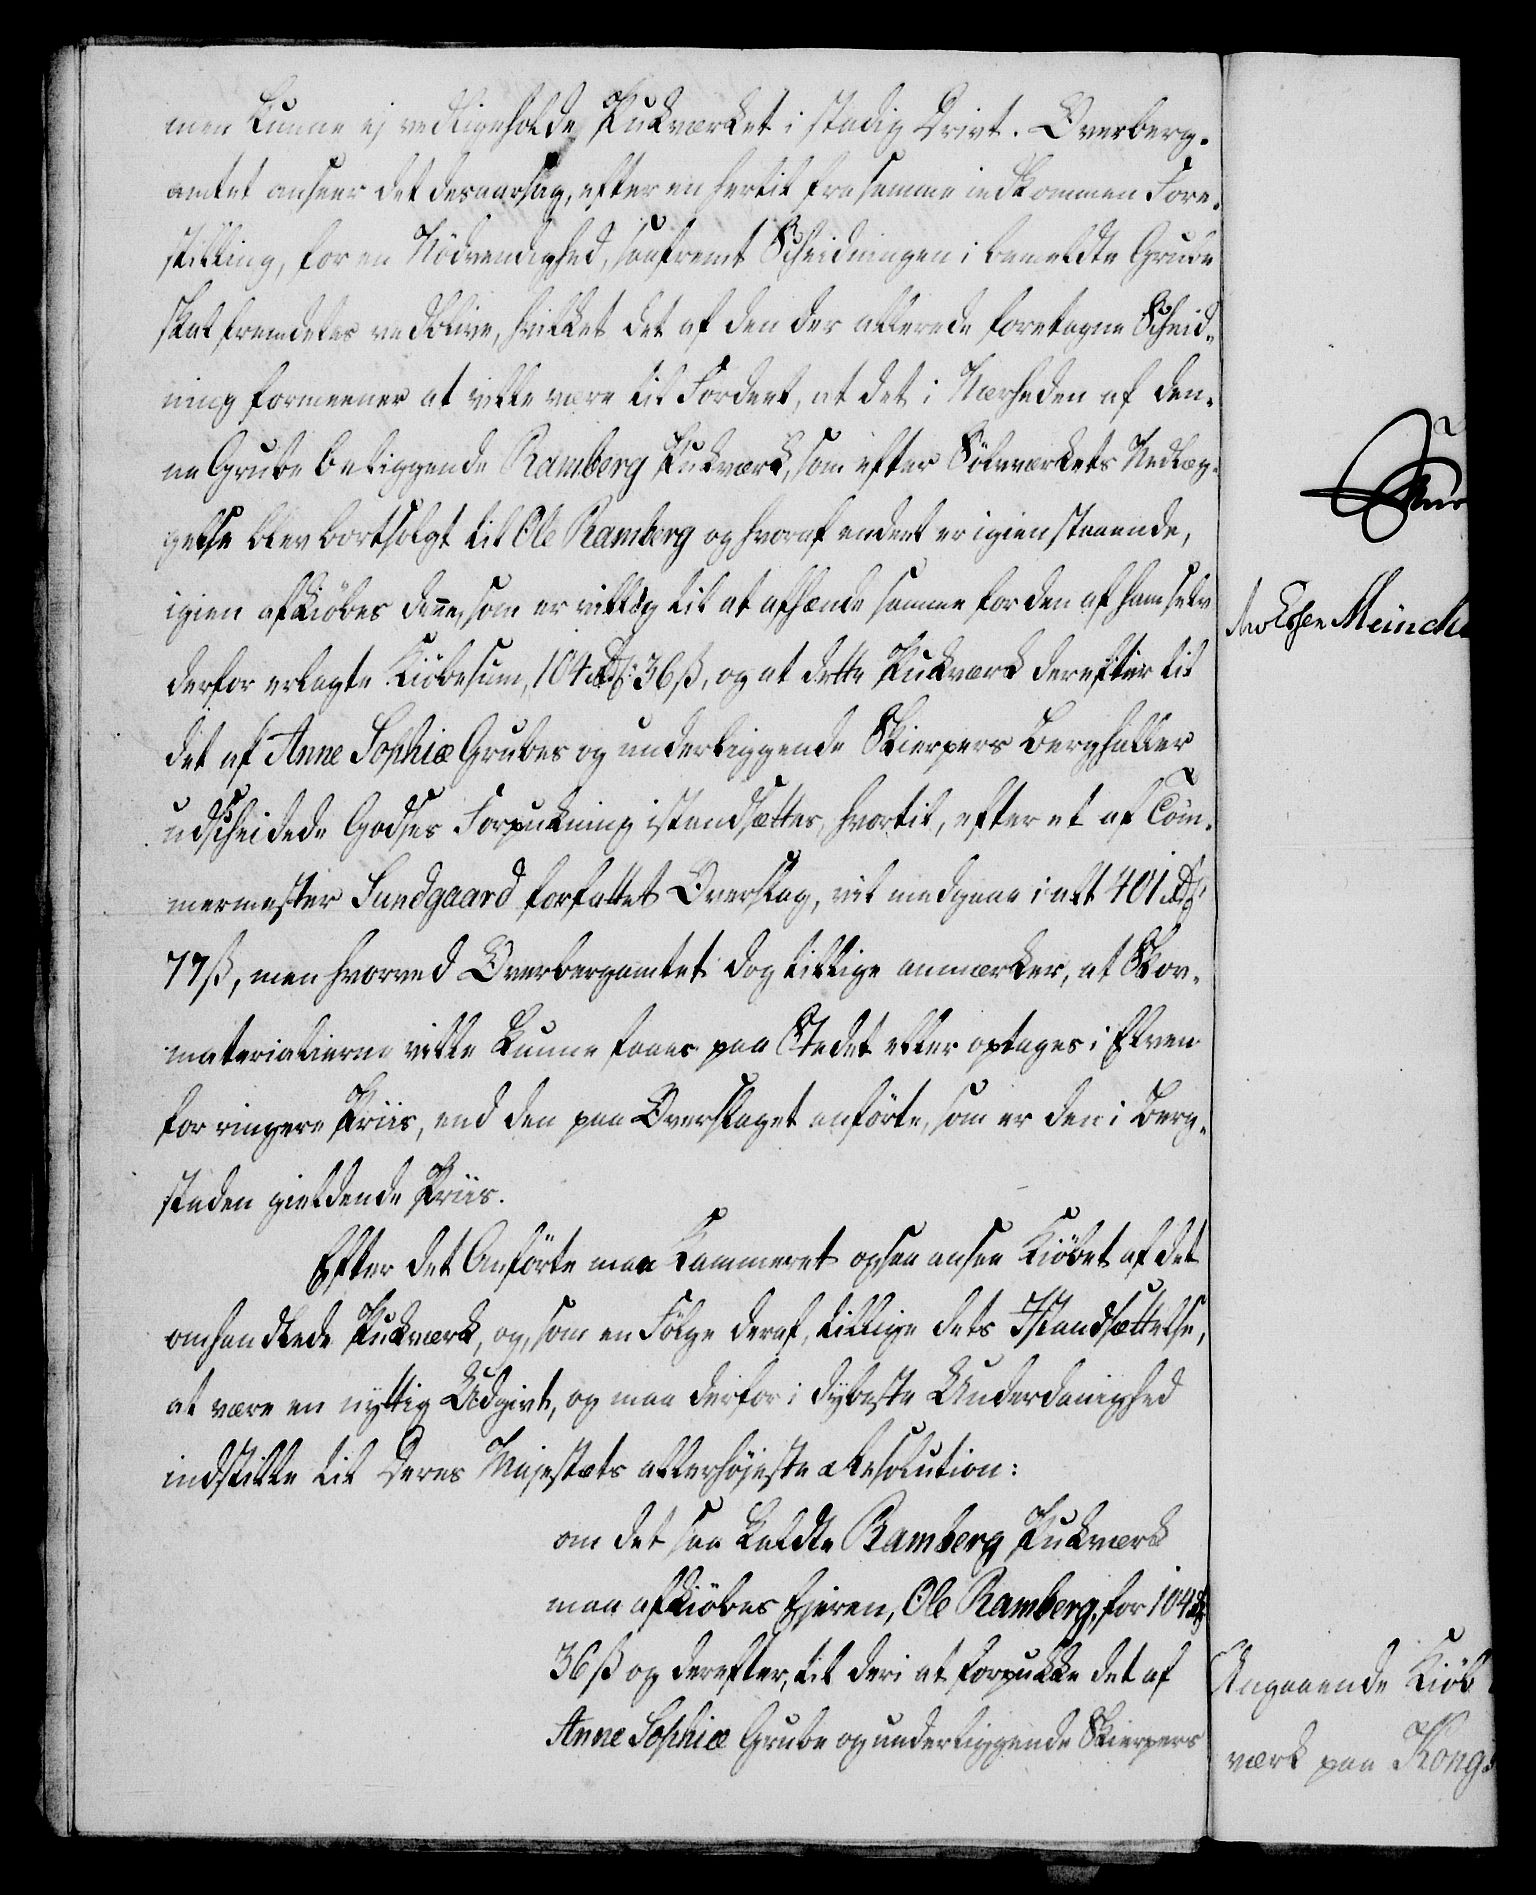 men kunne ej vedligeholde Pukværket i stadig Drivt. Overberg-
amtet anseer det desaarsag, efter en hertil fra samme indkommen Fore-
stilling, for en Nödvendighed, saafremt Scheidningen i bemeldte Grube
skal fremdeles vedblive, hvilket det af den der allerede foretagne Scheid-
ning formeener at ville være til Fordeel, at det i Nærheden af den-
ne Grube beliggende Ramberg Pukværk, som efter Sölvværkets Nedlæg-
gelse blev bortsolgt til Ole Ramberg og hvoraf endeel er igienstaaende,
igien afkiöbes denne, som er villig til at afhænde samme for den af ham selv
derfor erlagte Kiöbesum, 104 Rd: 36 ß, og at dette Pukværk derefter til
det af Anne Sophiæ Grubes og underliggende Skierpers Berghaller
udscheidede Godses Forpukning istandsættes, hvortil, efter et af Töm-
mermester Sundgaard forfattet Overslag, vil medgaae i alt 401 Rd:
77 ß, men hvorved Overbergamtet dog tillige anmærker, at Skov-
materialierne ville kunne faaes paa Stedet eller optages i Elven
for ringere Priis, end den paa Overslaget anförte, som er den i Berg-
staden gieldende Priis.
Efter det Anförte maa Kammeret ogsaa ansee Kiöbet af det
omhandlede Pukværk, og, som en Fölge deraf, tillige dets Istandsættelse,
at være en nyttig Udgivt, og maa derfor i dybeste Underdanighed
indstille til Deres Majestæts allerhöjeste Resolution:
om det saa kaldte Ramberg Pukværk
maa afkiöbes Ejeren, Ole Ramberg, for 104 Rd:
36 ß og derefter, til deri at forpukke det af
Anne Sophiæ Grube og underliggende Skierpers
Meinche
Angaaende Kiöb
værk paa Kongs